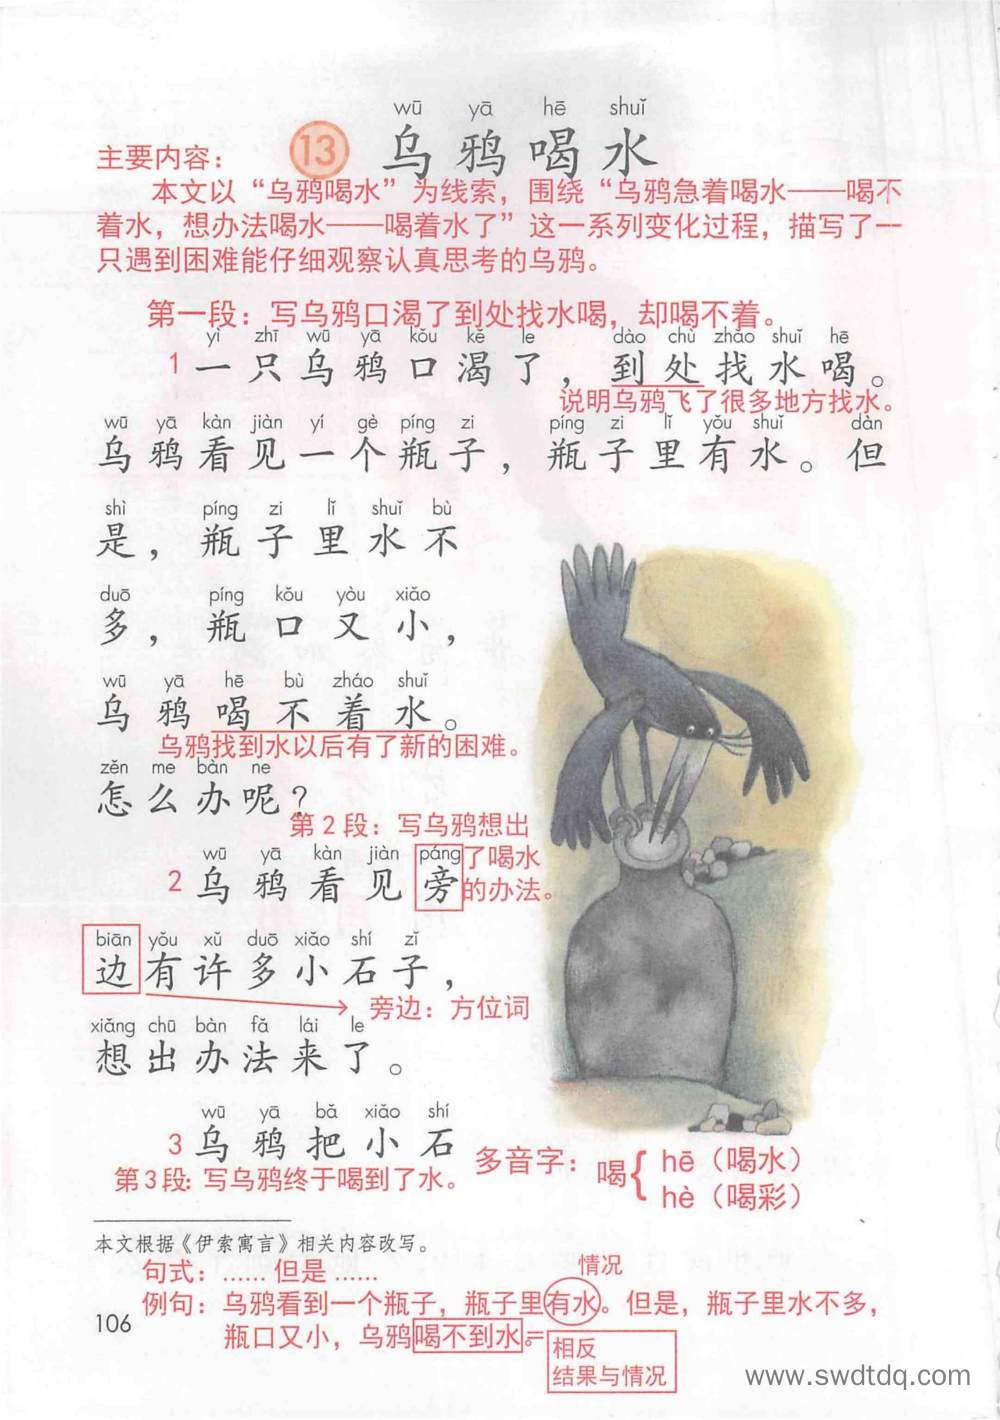 wū yā hē shuǐ
13 乌鸦喝水
主要内容：
本文以“乌鸦喝水”为线索，围绕“乌鸦急着喝水——喝不
着水，想办法喝水——喝着水了”这一系列变化过程，描写了一
只遇到困难能仔细观察认真思考的乌鸦。
第一段：写乌鸦口渴了到处找水喝，却喝不着。
yì zhī wū yā kǒu kě le dào chù zhǎo shuǐ hē
1 一只乌鸦口渴了，到处找水喝。
说明乌鸦飞了很多地方找水。
wū yā kàn jiàn yí gè píng zi píng zi lǐ yǒu shuǐ dàn
乌鸦看见一个瓶子，瓶子里有水。但
shì píng zi lǐ shuǐ bù
是，瓶子里水不
duō píng kǒu yòu xiǎo
多，瓶口又小，
wū yā hē bù zháo shuǐ
乌鸦喝不着水。
乌鸦找到水以后有了新的困难。
zěn me bàn ne
怎么办呢？
第2段：写乌鸦想出
了喝水
的办法。
wū yā kàn jiàn páng
2 乌鸦看见旁
biān yǒu xǔ duō xiǎo shí zǐ
边有许多小石子，
旁边：方位词
xiǎng chū bàn fǎ lái le
想出办法来了。
wū yā bǎ xiǎo shí
3 乌鸦把小石
第3段：写乌鸦终于喝到了水。
多音字：喝{ hē（喝水）
hè（喝彩）
本文根据《伊索寓言》相关内容改写。
句式：……但是……
情况
例句：乌鸦看到一个瓶子，瓶子里有水。但是，瓶子里水不多，
瓶口又小，乌鸦喝不到水。=
相反
结果与情况
106
www.swdtdq.com